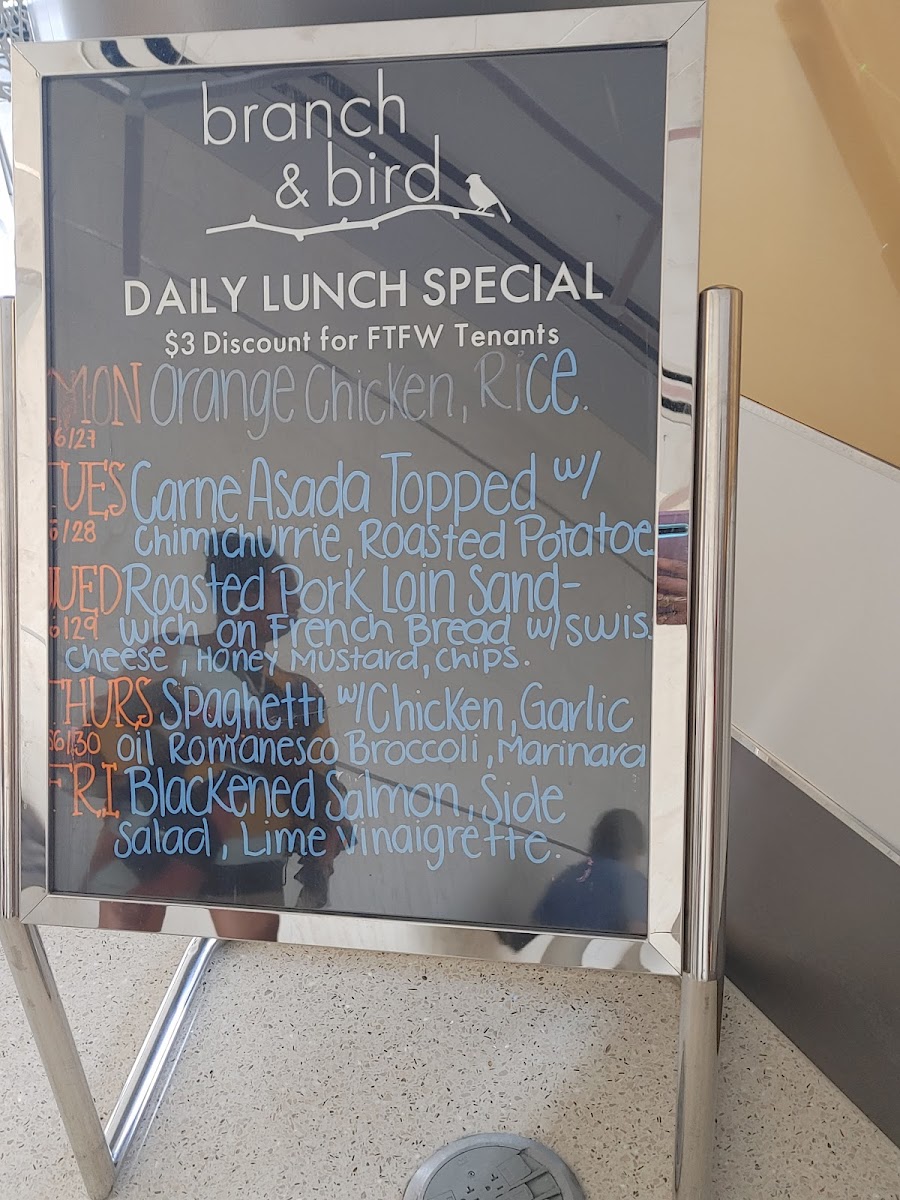 branch
& bird
DAILY LUNCH SPECIAL
$3 Discount for FTFW Tenants
MON Orange Chicken, Rice.
6/27
TUES Carne Asada Topped w/
6/28 Chimichurrie, Roasted Potatoe
WED Roasted Pork Loin Sand-
6/29 wich on French Bread w/ swis.
cheese, Honey Mustard, chips.
THURS Spaghetti w/ Chicken, Garlic
6/30 oil Romanesco Broccoli, Marinara
FRI Blackened Salmon, Side
Salad, Lime Vinaigrette.